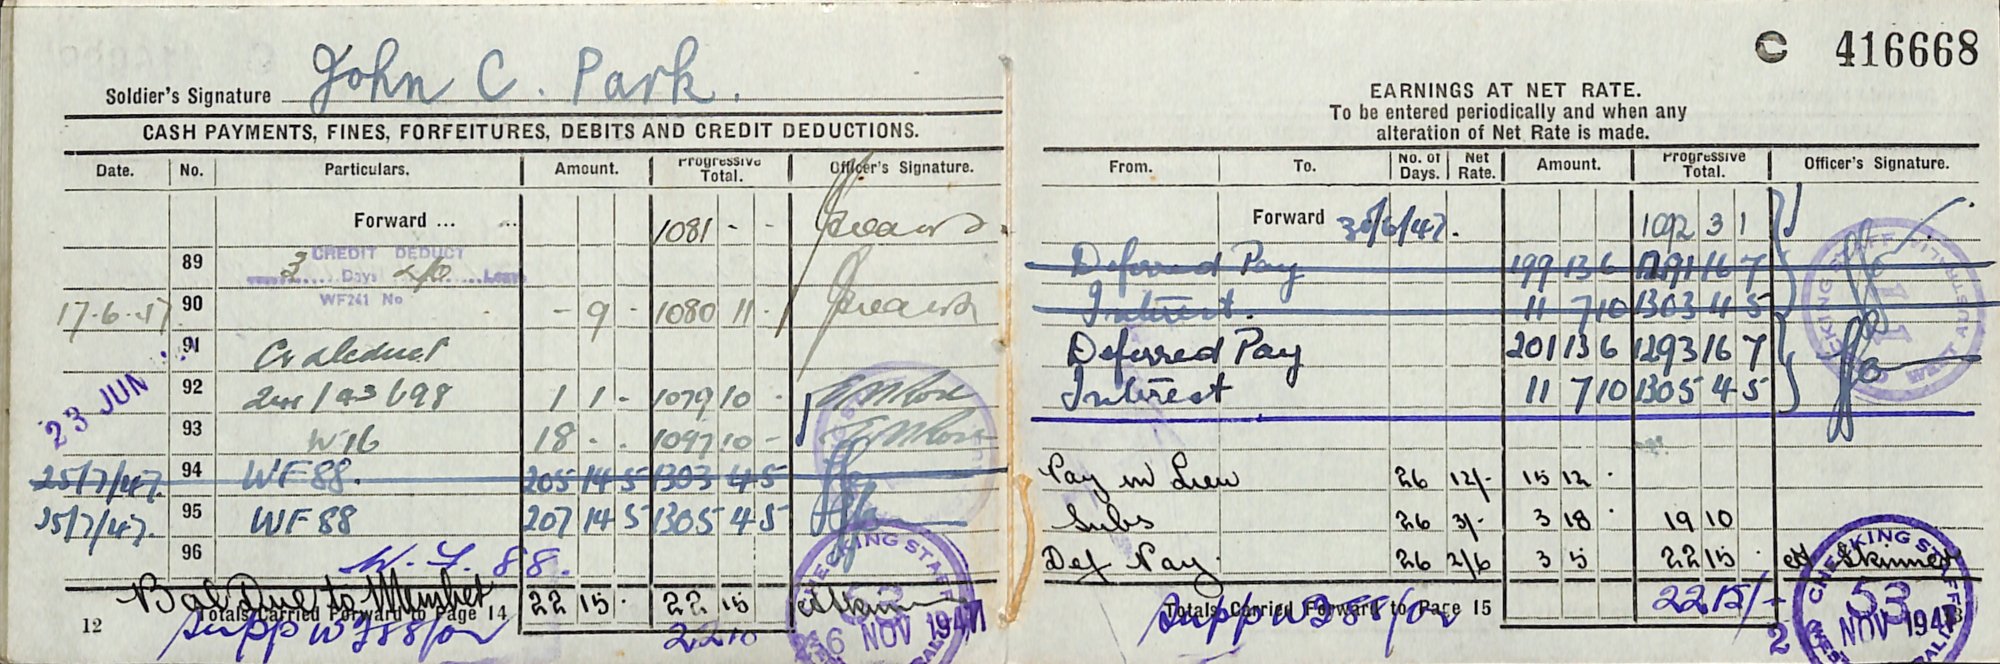 John C. Park.
Soldier's Signature
CASH PAYMENTS, FINES, FORFEITURES, DEBITS AND CREDIT DEDUCTIONS.
Date. No. Particulars. Amount. Progressive Total. Officer's Signature.
Forward ... ... 1081 - -
89 CREDIT DEDUCT
3 Days Leave
WF241 No
17.6.47 90 - 9 - 1080 11 -
91 Cr deduct
23 JUN 92 1 1 - 1079 10 -
93 W16 18 - - 1097 10 -
25/7/47. 94 WF88. 205 14 5 1303 4 5
25/7/47. 95 WF 88 207 14 5 1305 4 5
96 W. F. 88.
Bal Due to Member 22 15 - 22 15
Totals Carried Forward to Page 14
12
CHECKING STAFF
53
26 NOV 1947
C 416668
EARNINGS AT NET RATE.
To be entered periodically and when any
alteration of Net Rate is made.
From. To. No. of Days. Net Rate. Amount. Progressive Total. Officer's Signature.
Forward 30/6/47. 1092 3 1
Deferred Pay 199 13 6 1291 16 7
Interest. 11 7 10 1303 4 5
Deferred Pay 201 13 6 1293 16 7
Interest 11 7 10 1305 4 5
Pay in Lieu 26 12/- 15 12 -
Subs 26 3/- 3 18 - 19 10
Def Pay. 26 2/6 3 5 22 15 - Skinner
Totals Carried Forward to Page 15 22 15/-
CHECKING STAFF
53
26 NOV 1947